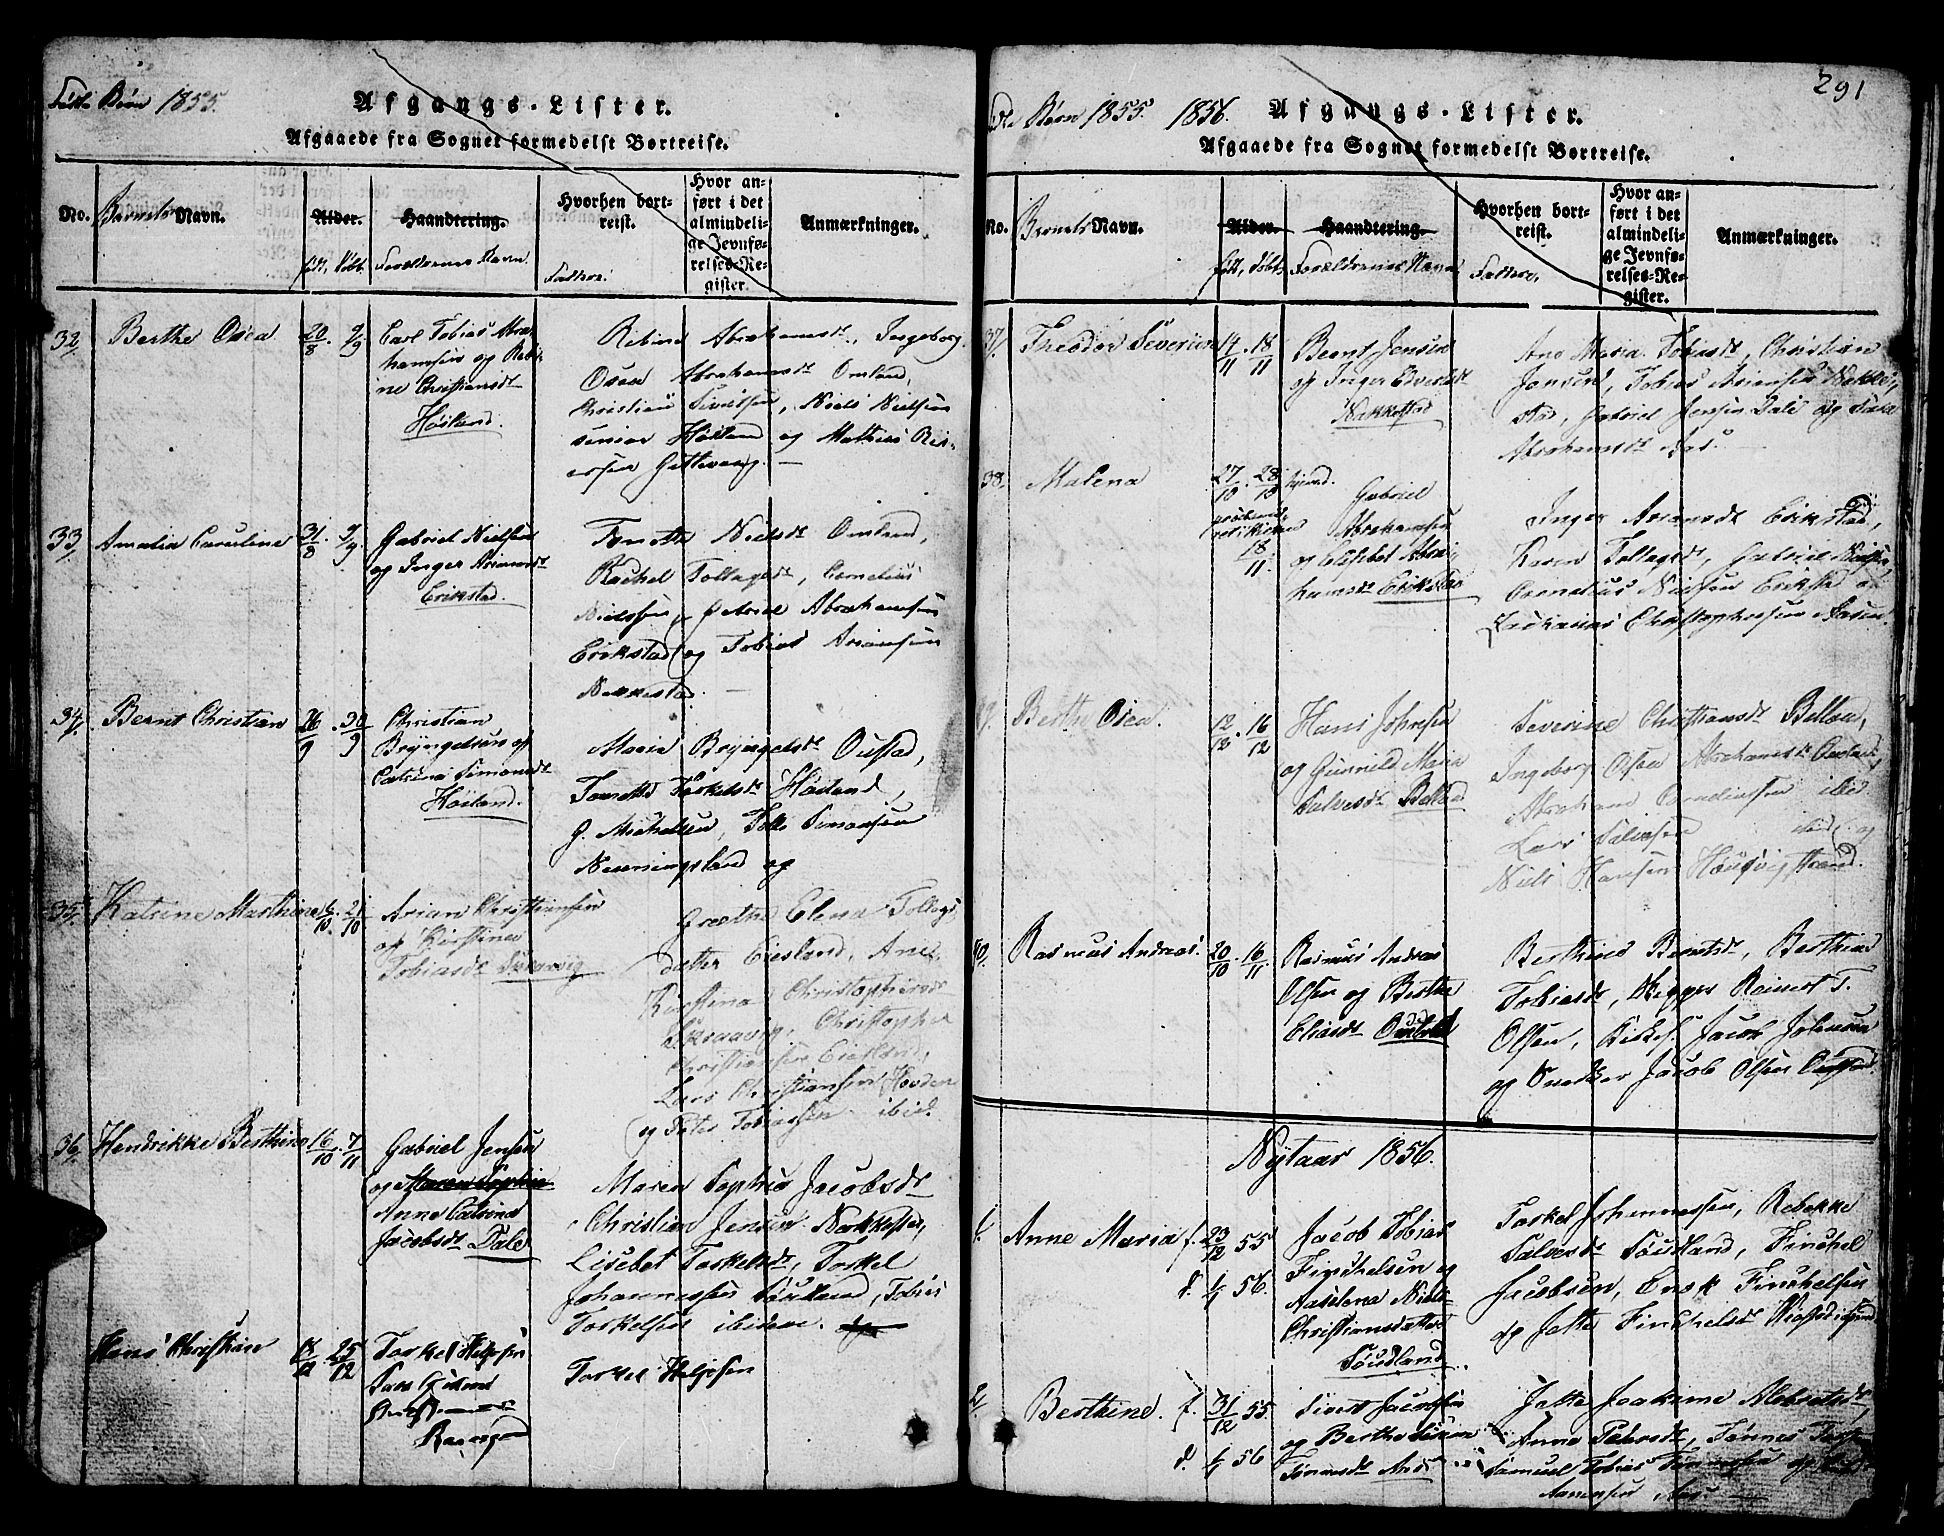 Födte Børn 1855.
Afgangs-Lister.
Afgaaede fra Sognet formedelst Bortreise.
No.
Barnets Navn.
Alder.
født, døbt
Haandtering.
Forældrenes Navn
Hvorhen bort-
reist.
Faddere:
Hvor an-
ført i det
almindeli-
ge Jevnfø-
relses-Re-
gister.
Anmærkninger.
32,
Berthe Osea
20/8 . 9/9
Carl Tobias Abra-
hamsen og Rebi-
ne Christiansdt
Høiland.
Rebine Abrahamsdt, Ingeborg
Osea Abrahamsdt Omland,
Christian Sivertsen, Niels Nielsen
senior Høiland og Mathias Rei-
ersen
33,
Amalia Caroline
31/8 . 9/9
Gabriel Nielsen
og Inger Ariansdt
Erikstad.
Tonette Nielsdt Omland,
Rachel Tollagsdt, Cornelius
Nielsen, Gabriel Abrahamsen
Erikstad og Tobias Ariansen
Nekkestad.
34,
Bernt Christian
26/9 . 30/9
Christian
Bryngelsen og
Catrina Simonsdt
Høiland.
Maria Bryngelsdt Oustad,
Tonette Torkelsdt Høiland,
G. Michelsen, Tolle Simonsen
Neuningsland og
35,
Katrine Marthine
6/10 . 21/10
Arian Christiansen
og Kirstine
Tobiasdt Skraavig
Grethe Elena Tollags
datter Eiesland, Ane
Kirstina Christophersdt
Skraavig, Christopher
Christiansen Eiesland,
Lars Christiansen Hovden
og Peter Tobiassen ibid.
36,
Hendrikke Berthine
16/10 . 7/11
Gabriel Jensen
og Maren Sophie
Anne Catrine
Jacobsdt Dale
Maren Sophie Jacobsdt
Christian Jensen Nekkestad,
Lisebet Torkelsdt, Torkel
Johannessen Søudland, Tobias
Torkelsen ibidem. og
Hans Christian
13/12 . 25/12
Torkel Helgesen
Torkel Helgesen
291
Fødte Børn 1855. 1856.
Afgangs-Lister.
Afgaaede fra Sognet formedelst Bortreise.
No.
Barnets Navn.
Alder.
født, døbt,
Haandtering.
Forældrenes Navn
Hvorhen bort-
reist.
Faddere,
Hvor an-
ført i det
almindeli-
ge Jevnfø-
relses-Re-
gister.
Anmærkninger.
37,
Theodor Severin
14/11 . 18/11
Bernt Jensen
og Inger Edvardsdt
Nekkestad
Ane Maria Tobiasdt, Christian
Jensen, Tobias Ariansen Nekke-
stad, Gabriel Jensen Dale og Sara
Abrahamsdt Aas.
38,
Malena
27/10 . 28/10 hjemd.
18/11.
Gabriel
Abrahamsen
og Elisebet Abra-
hamsdt Erikstad
Inger Ariansdt Erikstad,
Karen Tollagsdt, Gabriel Nielsen,
Cornelius Nielsen Erikstad og
Zacharias Christophersen Aasen.
39.
Berthe Osea.
12/12 . 16/12
Hans Johnsen
og Gunnild Maria
Salvesdt Belland
Severine Christiansdt Belland,
Ingeborg Osea Abrahamsdt Omland,
Abraham Corneliusen ibid
Lars Salvesen ibid og
Niels Hansen Høudvigstrand.
40.
Rasmus Andreas.
20/10 . 16/11
Rasmus Andreas
Olsen og Berthe
Eliasdt
Berthine Berntsdt, Berthine
Tobiasdt, Skipper Reinert T.
Olsen, Jacob Johnsen
og Snedker Jacob Olsen
Nytaar 1856.
1.
Anne Maria
f. 23/12 55
d. 1/1 56.
Jacob Tobias
Finckelsen og
Aaselena Niels
Christiansdatter
Søudland
Torkel Johannessen, Rebekke
Salvesdt Søudland, Finckel
Jacobsen, Enok Finckelsen
og Jette Finckelsdt
2,
Berthine.
f. 31/12 55
d. 1/1 56
Sivert Jacobsen
og Berthe Serine
Tønnesdt Aas
Jette Joakime Albretsdt,
Anne Pedersdt, Tønnes
Samuel Tobias Tønnesen og
Aanensen Aas.